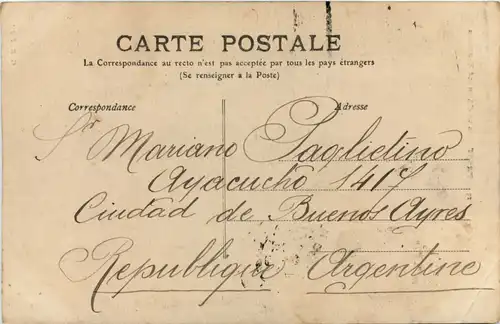 CARTE POSTALE
La Correspondance au recto n'est pas acceptée par tous les pays étrangers
(Se renseigner à la Poste)
Correspondance Adresse
Sr Mariano Paglietino
Ayacucho 1417
Ciudad de Buenos Ayres
Republique Argentine